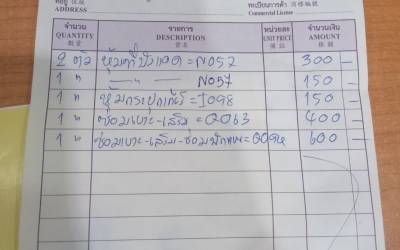 ที่อยู่ 住址
ADDRESS
ทะเบียนการค้า 商標編號
Commercial License
จำนวน QUANTITY 數量 รายการ DESCRIPTION 貨名 หน่วยละ UNIT PRICT 價銀 จำนวนเงิน AMOUNT 銀額
2 ตัว หุ้มที่บังแดด = N052 300 —
1 ต —"— N057 150 —
1 ต หุ้มกระปุกเกียร์ = I098 150 —
1 ต ซ่อมเบาะ-เสริม = Q063 400 —
1 ต ซ่อมเบาะ-เสริม-ซ่อม 600 —